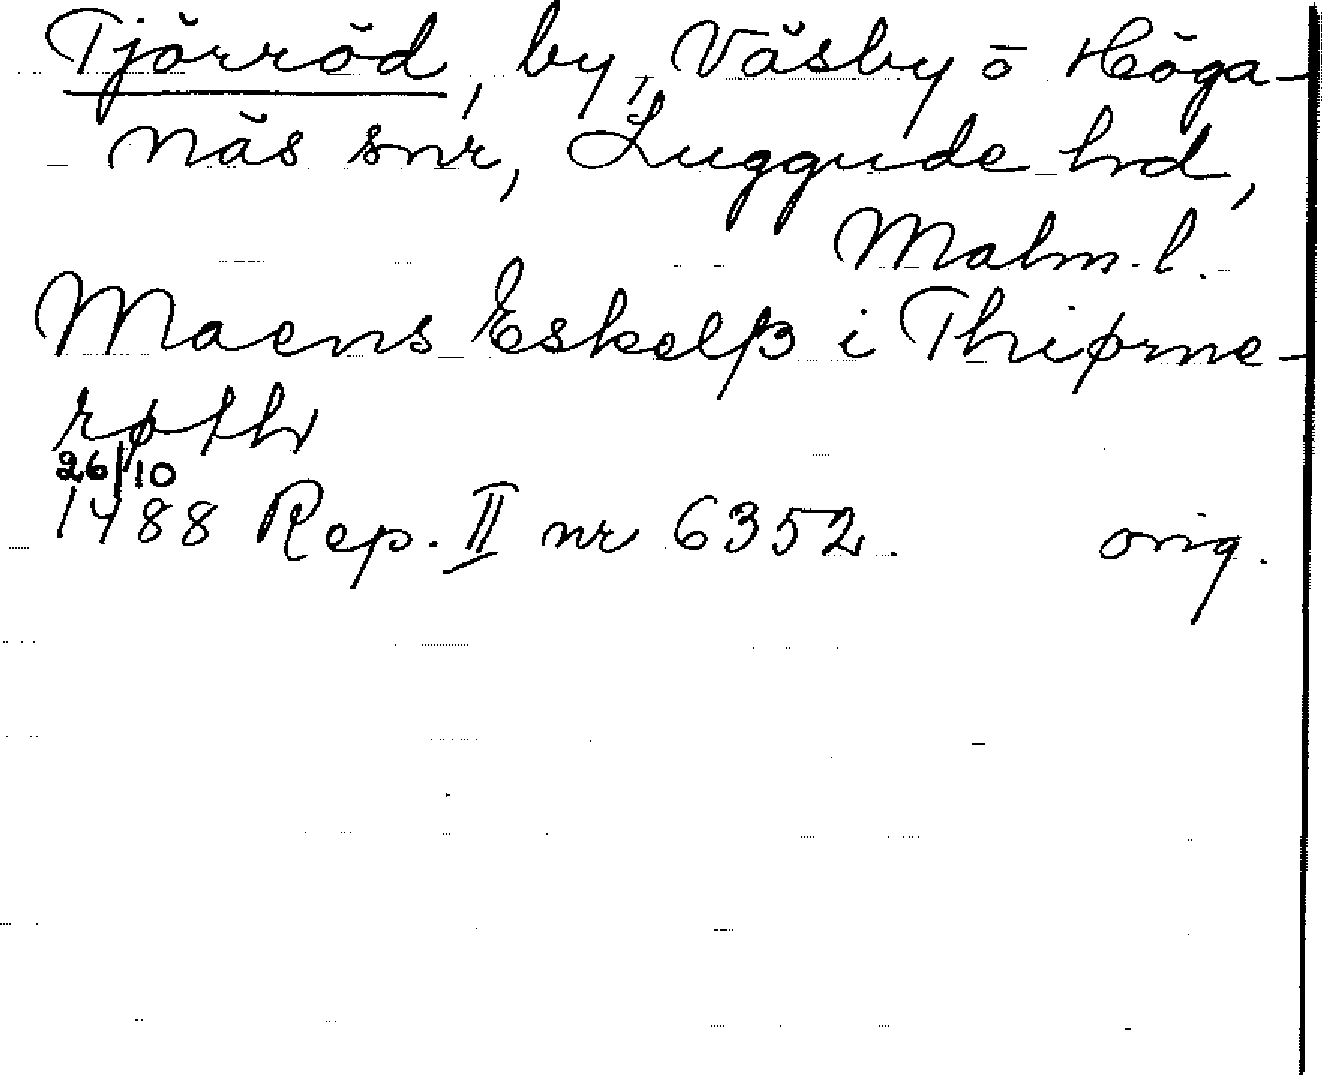 Tjörröd, by, Väsby o Höga-
näs snr, Luggude hd,
Malm. l.
Maens Eskelß i Thiørne-
røth
26/10
1488 Rep. II nr 6352. orig.